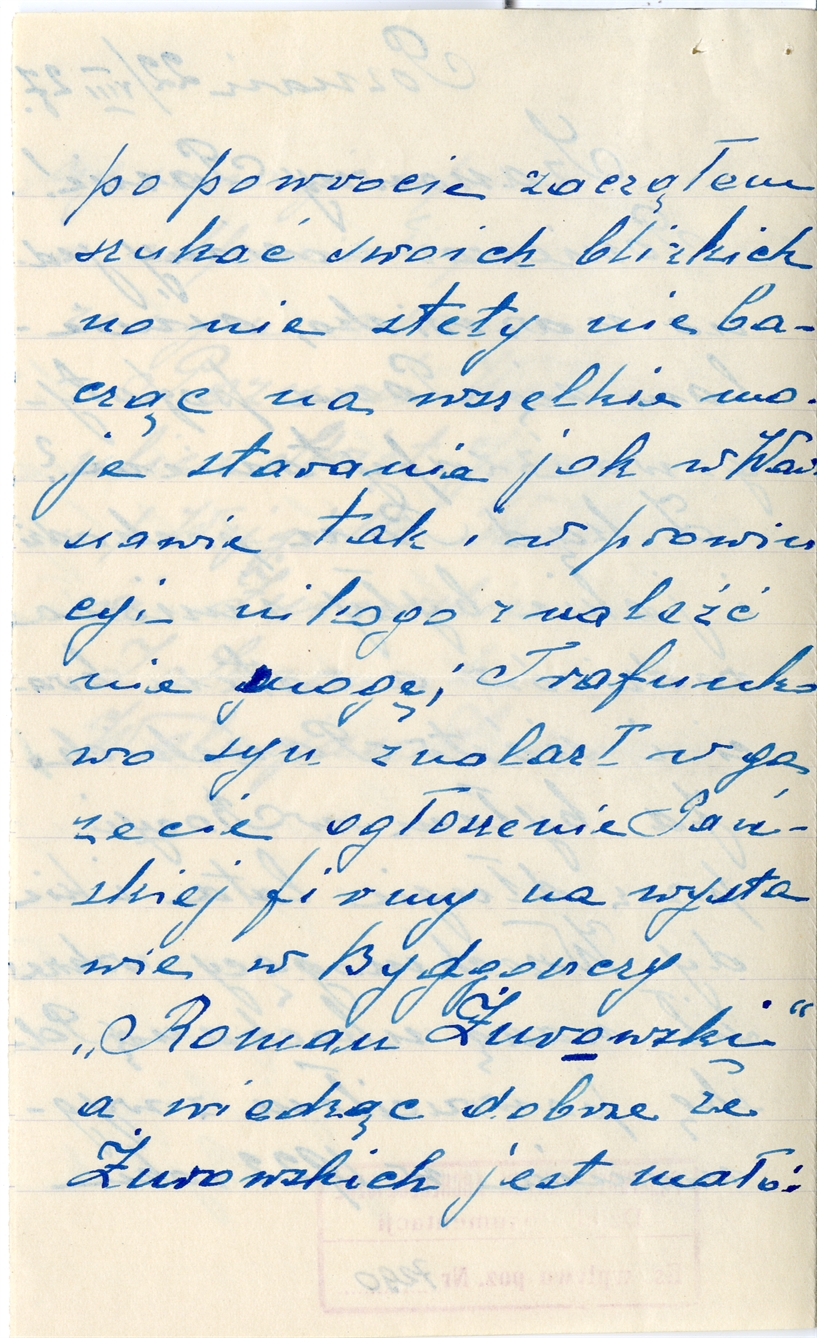 po powrocie zacząłem
szukać swoich blizkich
no nie stety nie ba-
cząc na wszelkie mo-
je starania jak w War
szawie tak i w prowin
cyi nikogo znaleźć
nie mogę; Trafunko
wo syn znalazł w ga
zecie ogłoszenie Pań-
skiej firmy na wysta
wie w Bydgoszczy
„Roman Żurowski“
a wiedząc dobrze że
Żurowskich jest mało: